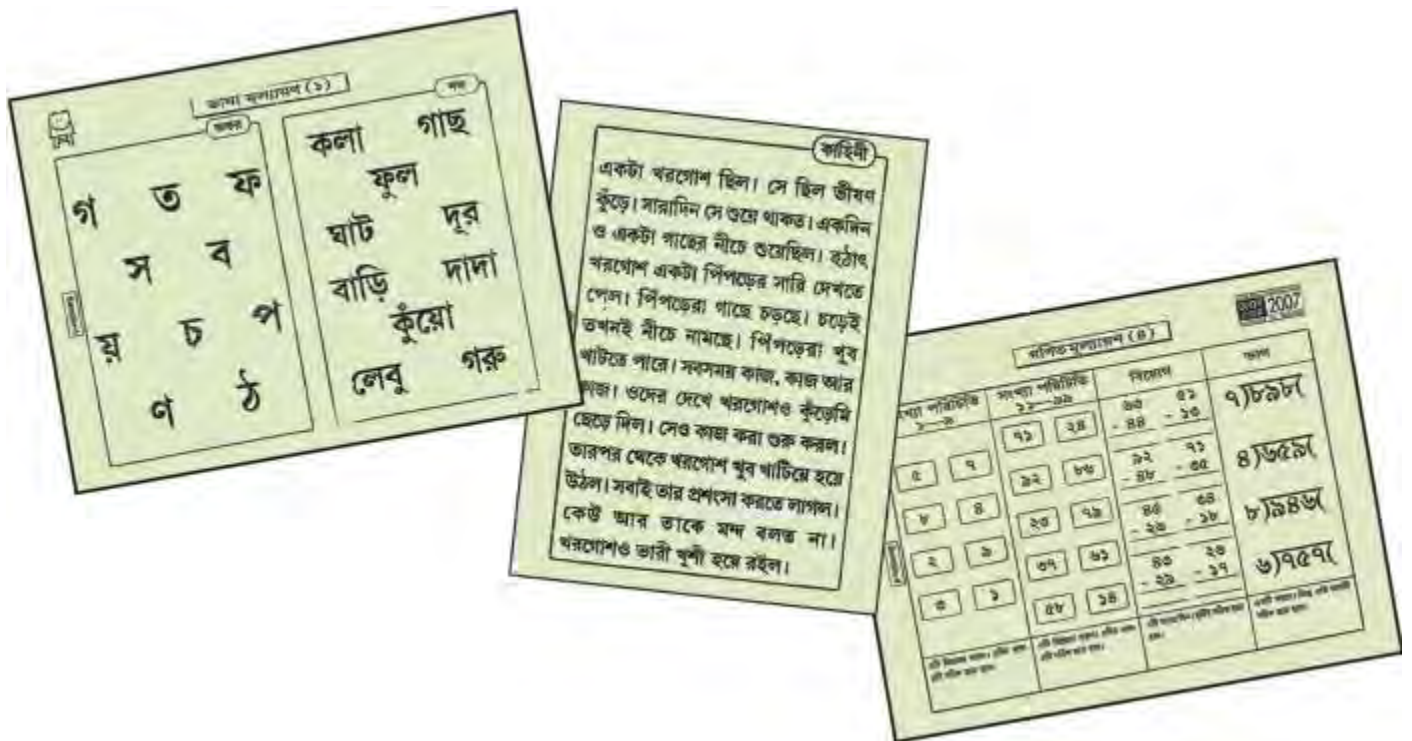 ভাষা মূল্যায়ণ (১)
অক্ষর
গ ত ফ
স ব
য় চ প
ণ ঠ
শব্দ
কলা গাছ
ফুল
ঘাট দূর
বাড়ি দাদা
কুঁয়ো
লেবু গরু
কাহিনী
একটা খরগোশ ছিল। সে ছিল ভীষণ
কুঁড়ে। সারাদিন সে শুয়ে থাকত। একদিন
ও একটা গাছের নীচে শুয়েছিল। হঠাৎ
খরগোশ একটা পিঁপড়ের সারি দেখতে
পেল। পিঁপড়েরা গাছে চড়ছে। চড়েই
তখনই নীচে নামছে। পিঁপড়েরা খুব
খাটতে পারে। সবসময় কাজ, কাজ আর
কাজ। ওদের দেখে খরগোশও কুঁড়েমি
ছেড়ে দিল। সেও কাজ করা শুরু করল।
তারপর থেকে খরগোশ খুব খাটিয়ে হয়ে
উঠল। সবাই তার প্রশংসা করতে লাগল।
কেউ আর তাকে মন্দ বলত না।
খরগোশও ভারী খুশী হয়ে রইল।
2007
গণিত মূল্যায়ণ (৪)
সংখ্যা পরিচিতি
১—৯
৫ ৭
৮ ৪
২ ৯
৩ ১
সংখ্যা পরিচিতি
১১—৯৯
৭১ ২৪
৯২ ৮৬
২৩ ৭৯
৩৭ ৬১
৫৮ ১৪
বিয়োগ
৬৩ ৫১
- ৪৪ - ১৩
৯২ ৭১
- ৪৮ - ৩৫
৪৫ ৩৪
- ২৬ - ১৮
৪৩ ২৩
- ২৯ - ১৭
ভাগ
৭)৮৯৮(
৪)৬৫৯(
৮)৯৪৬(
৬)৭৫৭(